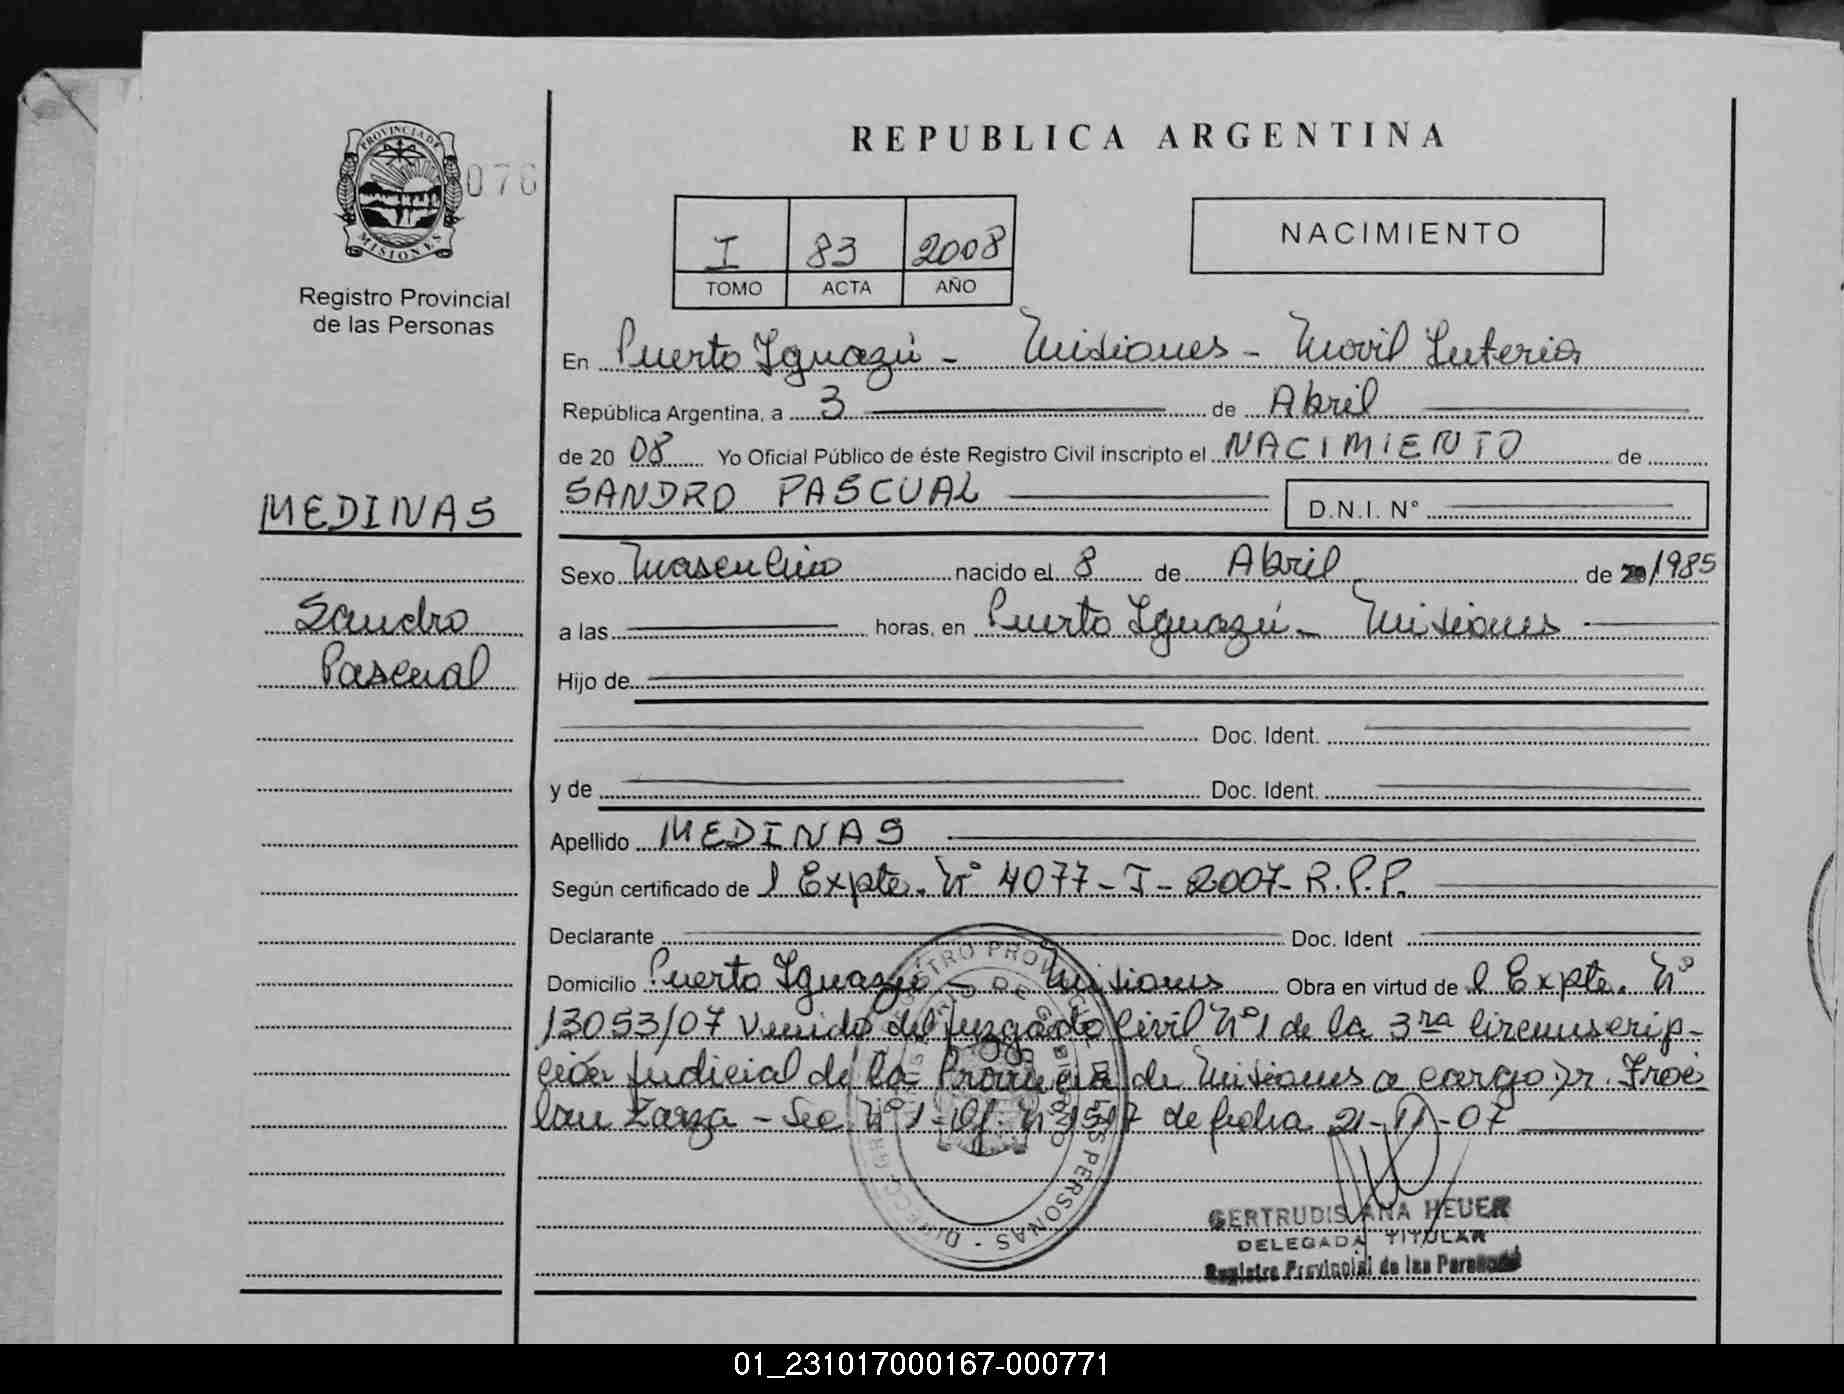 PROVINCIA DE
MISIONES
076
Registro Provincial
de las Personas
MEDINAS
Sandro
Pascual
REPUBLICA ARGENTINA
I 83 2008
TOMO ACTA AÑO
NACIMIENTO
En Puerto Iguazú - Misiones - Movil Interior
República Argentina, a 3 de Abril
de 20 08 Yo Oficial Público de éste Registro Civil inscripto el NACIMIENTO de
SANDRO PASCUAL D.N.I. N°
Sexo Masculino nacido el 8 de Abril de 20/1985
a las horas, en Puerto Iguazú - Misiones
Hijo de
Doc. Ident.
y de Doc. Ident.
Apellido MEDINAS
Según certificado de l Expte. N° 4077-I-2007-R.P.P.
Declarante Doc. Ident
Domicilio Puerto Iguazú - Misiones Obra en virtud de l Expte. N°
13053/07 Venido del Juzgado Civil N°1 de la 3ra Circunscrip-
ción Judicial de la Provincia de Misiones a cargo Dr. Froi
lan Zarza - Sec. N° 1 - Of. N° 1517 de fecha 21-11-07
GERTRUDIS ANA HEUER
DELEGADA TITULAR
Registro Provincial de las Personas
01_231017000167-000771